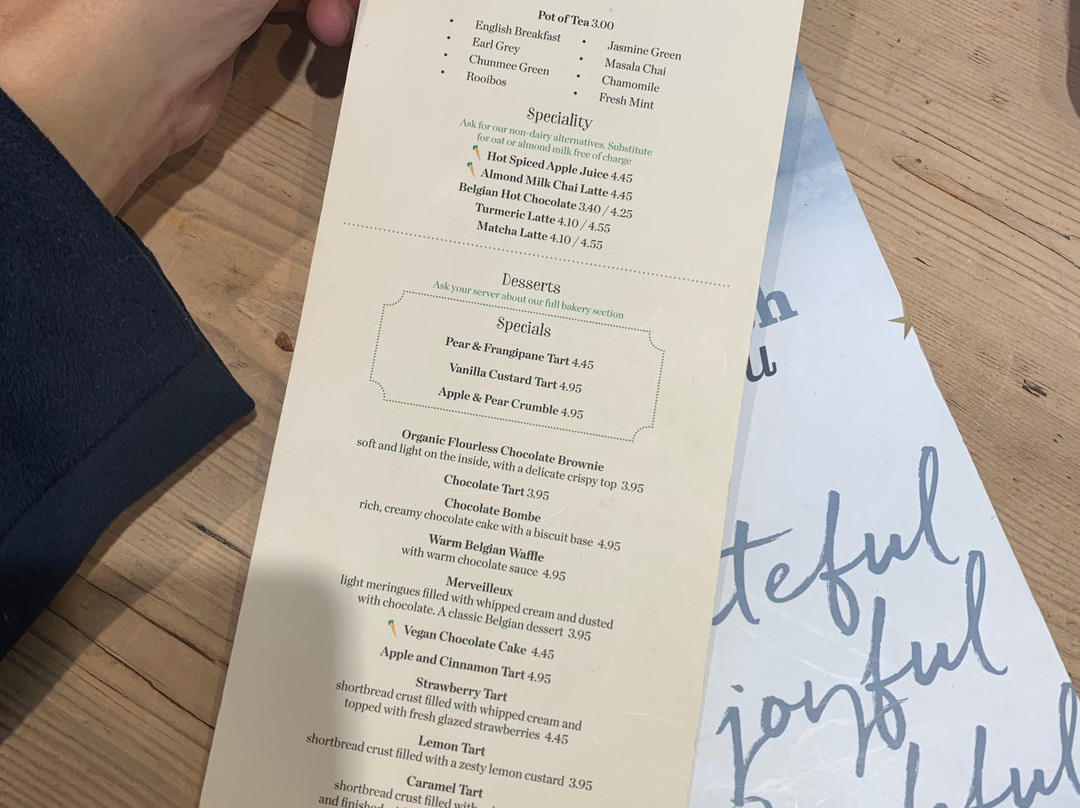 Pot of Tea 3.00
• English Breakfast
• Earl Grey
• Chunmee Green
• Rooibos
• Jasmine Green
• Masala Chai
• Chamomile
• Fresh Mint
Speciality
Ask for our non-dairy alternatives. Substitute
for oat or almond milk free of charge
Hot Spiced Apple Juice 4.45
Almond Milk Chai Latte 4.45
Belgian Hot Chocolate 3.40 / 4.25
Turmeric Latte 4.10 / 4.55
Matcha Latte 4.10 / 4.55
Desserts
Ask your server about our full bakery section
Specials
Pear & Frangipane Tart 4.45
Vanilla Custard Tart 4.95
Apple & Pear Crumble 4.95
Organic Flourless Chocolate Brownie
soft and light on the inside, with a delicate crispy top 3.95
Chocolate Tart 3.95
Chocolate Bombe
rich, creamy chocolate cake with a biscuit base 4.95
Warm Belgian Waffle
with warm chocolate sauce 4.95
Merveilleux
light meringues filled with whipped cream and dusted
with chocolate. A classic Belgian dessert 3.95
Vegan Chocolate Cake 4.45
Apple and Cinnamon Tart 4.95
Strawberry Tart
shortbread crust filled with whipped cream and
topped with fresh glazed strawberries 4.45
Lemon Tart
shortbread crust filled with a zesty lemon custard 3.95
Caramel Tart
shortbread crust filled with
and finished
h
u
teful
joyful
ful